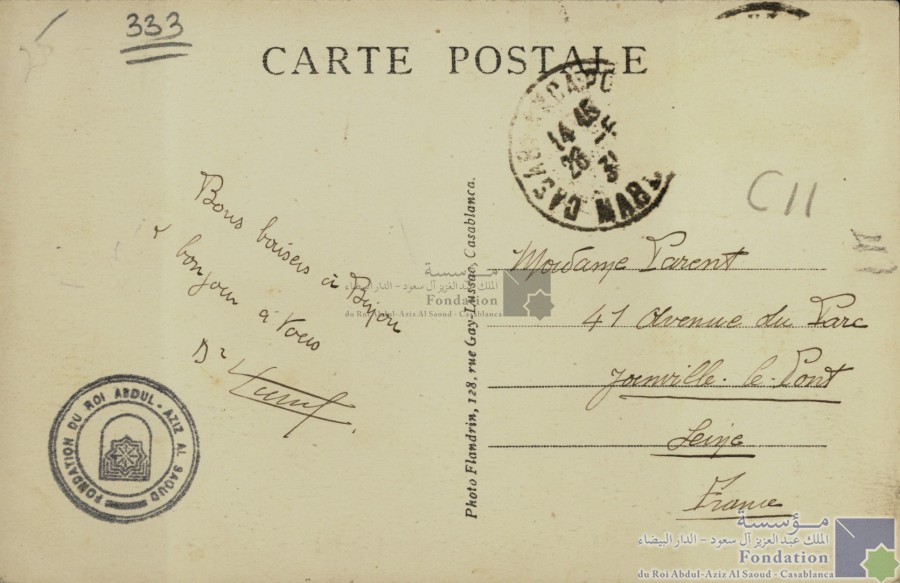 333
CARTE POSTALE
CASABLANCA PO
14 45
26 - 4
31
MAROC
C11
Bons baisers à Bijou
& bonjour à vous
Dr
Madame Parent
41 Avenue du Parc
Joinville-le-Pont
Seine
France
Photo Flandrin, 128, rue Gay-Lussac, Casablanca.
FONDATION DU ROI ABDUL-AZIZ AL SAOUD
مؤسسة
الملك عبد العزيز آل سعود - الدار البيضاء
Fondation
du Roi Abdul-Aziz Al Saoud - Casablanca
مؤسسة
الملك عبد العزيز آل سعود - الدار البيضاء
Fondation
du Roi Abdul-Aziz Al Saoud - Casablanca